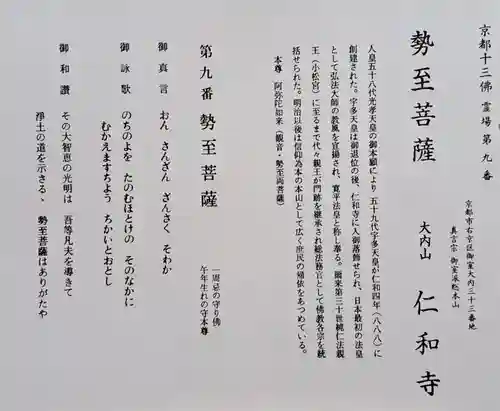 京都十三佛霊場第九番
京都市右京区御室大内三十三番地
真言宗 御室派総本山
勢至菩薩 大内山 仁和寺
人皇五十八代光孝天皇の御本願により 五十九代宇多天皇が仁和四年(八八八)に
創建された。宇多天皇は御退位の後、仁和寺に入御落飾せられ、日本最初の法皇
として弘法大師の教風を宣揚され、寛平法皇と称し奉る。爾来第三十世純仁法親
王(小松宮)に至るまで代々親王が門跡を継承され総法務官として佛教各宗を統
括せられた。明治以後は信仰為本の本山として広く庶民の帰依をあつめている。
本尊 阿弥陀如来(観音・勢至両菩薩)
第九番 勢至菩薩
一周忌の守り佛
午年生れの守本尊
御真言 おん さんざん ざんさく そわか
御詠歌 のちのよを たのむほとけの そのなかに
むかえますちよう ちかいとおとし
御和讃 その大智恵の光明は 吾等凡夫を導きて
浄土の道を示さる、 勢至菩薩はありがたや